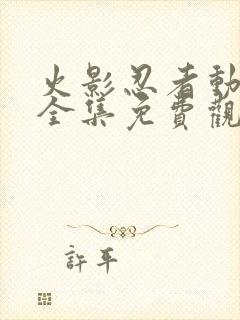 火影忍者動
全集免費觀
許平